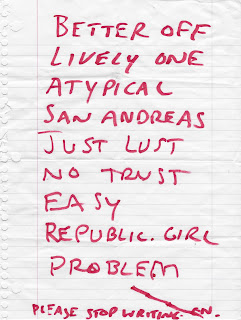 BETTER OFF
LIVELY ONE
ATYPICAL
SAN ANDREAS
JUST LUST
NO TRUST
EASY
REPUBLIC. GIRL
PROBLEM
PLEASE STOP WRITING